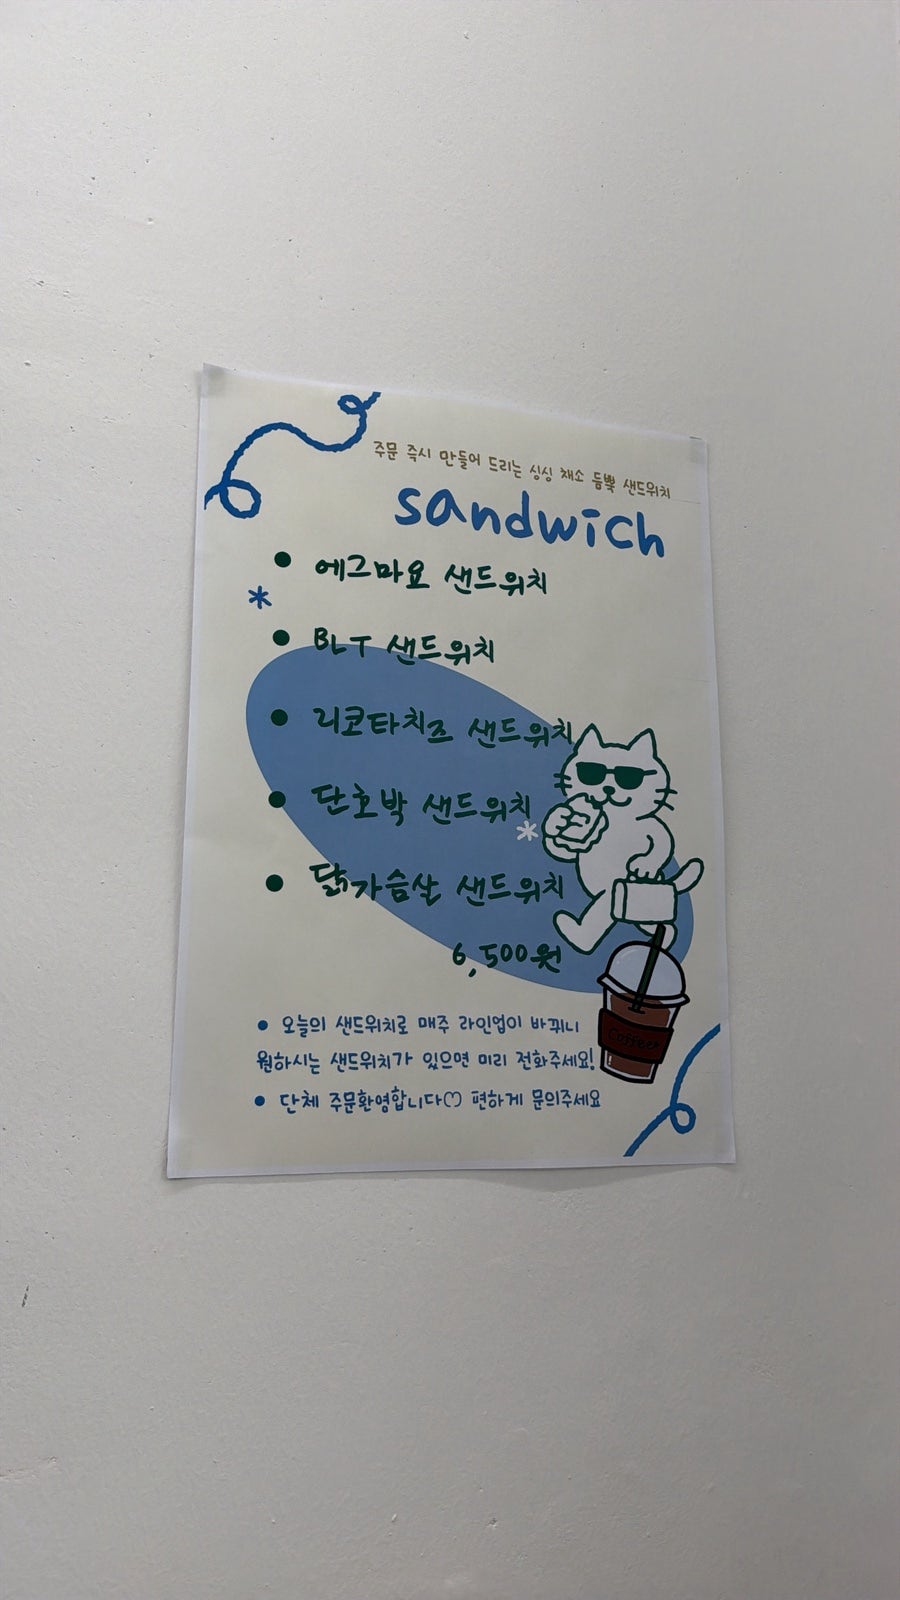 주문 즉시 만들어 드리는 싱싱 채소 듬뿍 샌드위치
sandwich
● 에그마요 샌드위치
● BLT 샌드위치
● 리코타치즈 샌드위치
● 단호박 샌드위치
● 닭가슴살 샌드위치
6,500원
● 오늘의 샌드위치로 매주 라인업이 바뀌니
원하시는 샌드위치가 있으면 미리 전화주세요!
● 단체 주문환영합니다♡ 편하게 문의주세요
Coffee